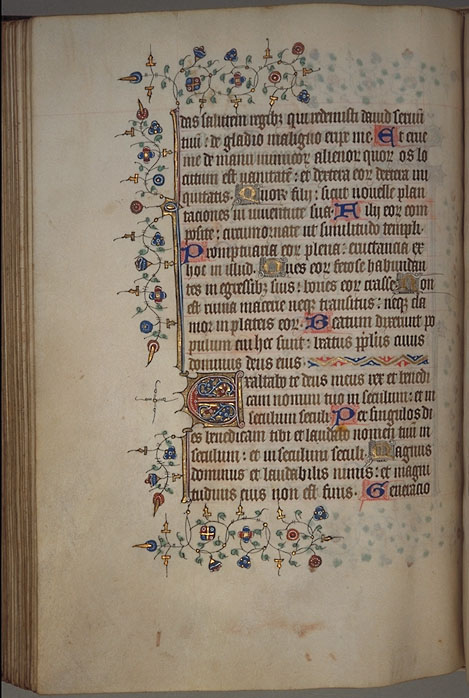 das salutem regibz qui redemisti dauid seruū
tuū: de gladio maligno eripe me Et erue
me de manu inimicor alienor quor os lo
cutum est uanitatē: et dextera eor dextera ini
quitatis Quor filij: sicut nouelle plan
taciones in iuuentute sua. Filij eor com
posite: circumornate ut similitudo templi.
Promptuaria eor plena: eructancia ex
hoc in illud. Oues eor fetose habundan
tes in egressibz suis: boues eor crasse Non
est ruina macerie neqz transitus: neqz cla
mor in plateis eor. Beatum dixerunt po
pulum cui hec sunt: beatus pplus cuius
dominus deus eius.
Exaltabo te deus meus rex et benedi
cam nomini tuo in seculum: et in
seculum seculi Per singulos di
es benedicam tibi et laudabo nomen tuū in
seculum: et in seculum seculi. Magnus
dominus et laudabilis nimis: et magni
tudinis eius non est finis. Generacio